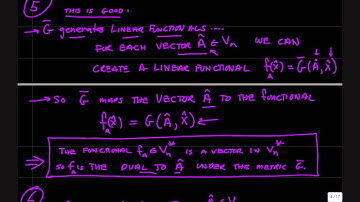 5 THIS IS GOOD:
→ G̅ generates LINEAR FUNCTIONALS ....
FOR EACH VECTOR Â ∈ Vn WE CAN
CREATE A LINEAR FUNCTIONAL f_A(x̂) = G̅(Â, x̂)
→ So G̅ MAPS THE VECTOR Â TO THE FUNCTIONAL
f_A(x̂) = G(Â, x̂) ←
THE FUNCTIONAL f_A ∈ Vn* IS A VECTOR IN Vn*
⇒ SO f_A IS THE DUAL TO Â UNDER THE METRIC G̅.
6